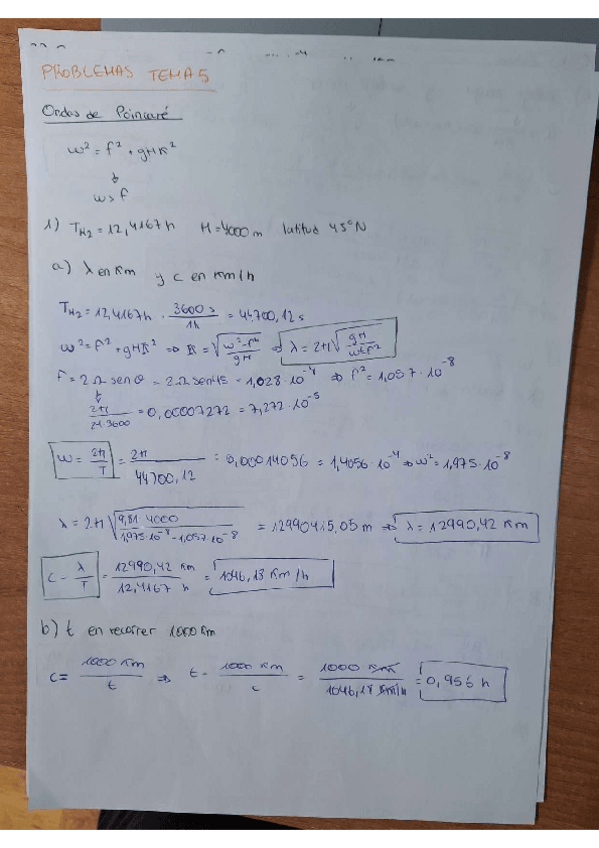 PROBLEMAS TEMA 5
Ondas de Poincaré
w² = f² + gHK²
↓
w > f
1) T_M2 = 12,4167 h H = 4000 m latitud 45°N
a) λ en Km y c en Km/h
T_M2 = 12,4167 h · 3600 s / 1h = 44700,12 s
w² = f² + gHK² ⇒ K = √((w² - f²) / gH) ⇒ λ = 2π √(gH / (w² - f²))
f = 2 Ω sen θ = 2 Ω sen 45 = 1,028 · 10⁻⁴ ⇒ f² = 1,057 · 10⁻⁸
↓
2π / 24·3600 = 0,00007272 = 7,272 · 10⁻⁵
w = 2π / T = 2π / 44700,12 = 0,00014056 = 1,4056 · 10⁻⁴ ⇒ w² = 1,975 · 10⁻⁸
λ = 2π √(9,81 · 4000 / (1,975·10⁻⁸ - 1,057·10⁻⁸)) = 12990415,05 m ⇒ λ = 12990,42 Km
c = λ / T = 12990,42 Km / 12,4167 h = 1046,18 Km/h
b) t en recorrer 1000 Km
c = 1000 Km / t ⇒ t = 1000 Km / c = 1000 Km / 1046,18 Km/h = 0,956 h